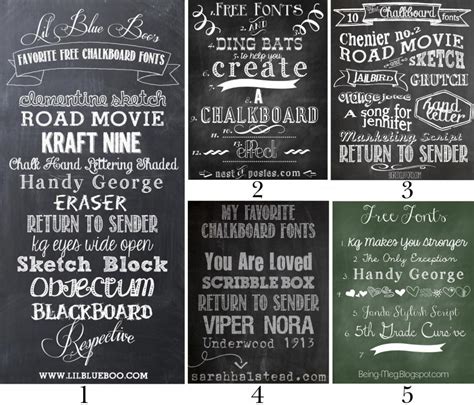 Lil Blue Boo's
FAVORITE FREE CHALKBOARD FONTS
clementine sketch
ROAD MOVIE
KRAFT NINE
Chalk Hand Lettering Shaded
Handy George
ERASER
RETURN TO SENDER
kg eyes wide open
Sketch Block
OBJECTUM
BLACKBOARD
Respective
WWW.LILBLUEBOO.COM
1
FREE FONTS
AND
DING BATS
to help you
create
A
CHALKBOARD
effect
nest of posies.com
2
10
Chalkboard
fonts
Chenier no.2
ROAD MOVIE
SKETCH
JAILBIRD
GRUTCH
Jenna Sue
a song for
jennifer
hand
letter
Marketing Script
RETURN TO SENDER
3
MY FAVORITE
CHALKBOARD FONTS
You Are Loved
SCRIBBLE BOX
RETURN TO SENDER
VIPER NORA
Underwood 1913
sarahhalstead.com
4
Free Fonts
1. KG Makes You Stronger
2. The Only Exception
3. Handy George
4.
5. Janda Stylish Script
6. 5th Grade Cursive
Being-Meg.Blogspot.com
5